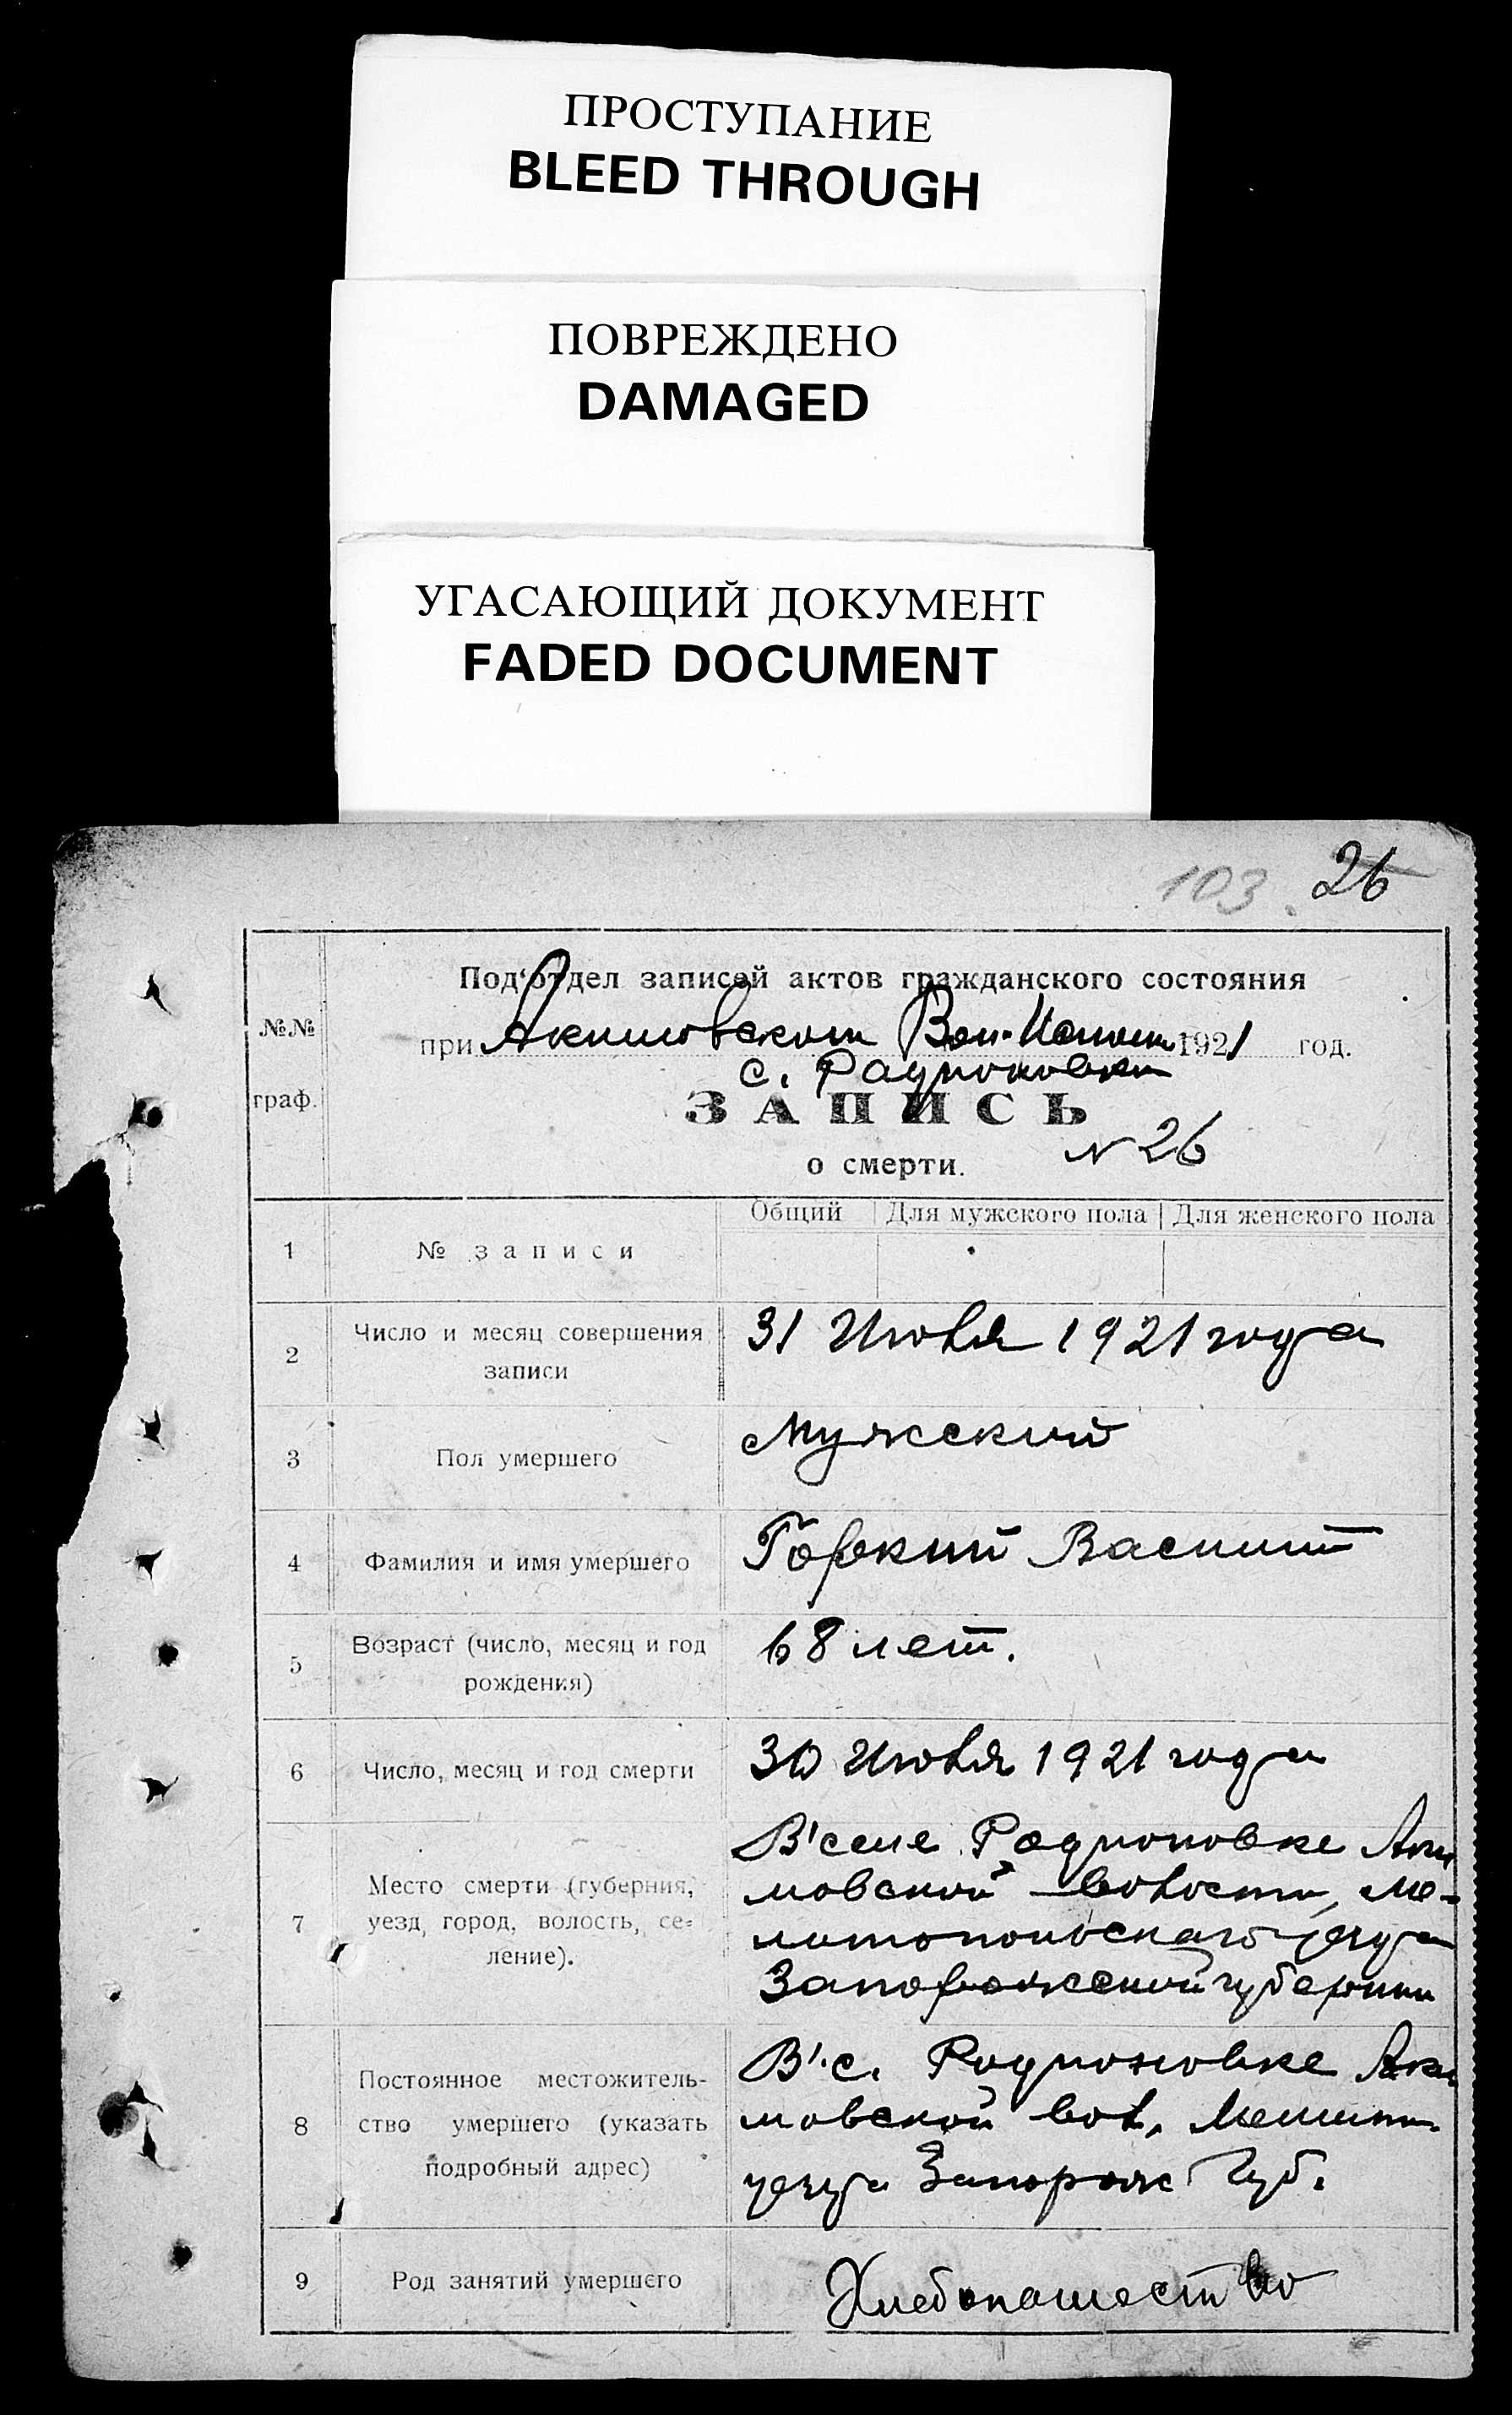 ПРОСТУПАНИЕ
BLEED THROUGH
ПОВРЕЖДЕНО
DAMAGED
УГАСАЮЩИЙ ДОКУМЕНТ
FADED DOCUMENT
103. 26
№№ граф.
Под'отдел записей актов гражданского состояния
при Акимовском Вол. 1921 год.
с. Радионовки
ЗАПИСЬ
о смерти. N 26
Общий Для мужского пола Для женского пола
1 № записи
2 Число и месяц совершения 31 Июля 1921 года
записи
3 Пол умершего Мужеский
4 Фамилия и имя умершего Горкий Василий
5 Возраст (число, месяц и год 68 лет.
рождения)
6 Число, месяц и год смерти 30 Июля 1921 года
В'селе Радионовке Аки
7 Место смерти (губерния, мовской волости, Ме-
уезд, город, волость, се- литопольскаго уезда
ление). Запорожской губернии
8 Постоянное местожитель- В'.с. Родионовке Аки
ство умершего (указать мовской вол. Мелит.
подробный адрес) уезда Запорож Губ.
9 Род занятий умершего Хлебопашество